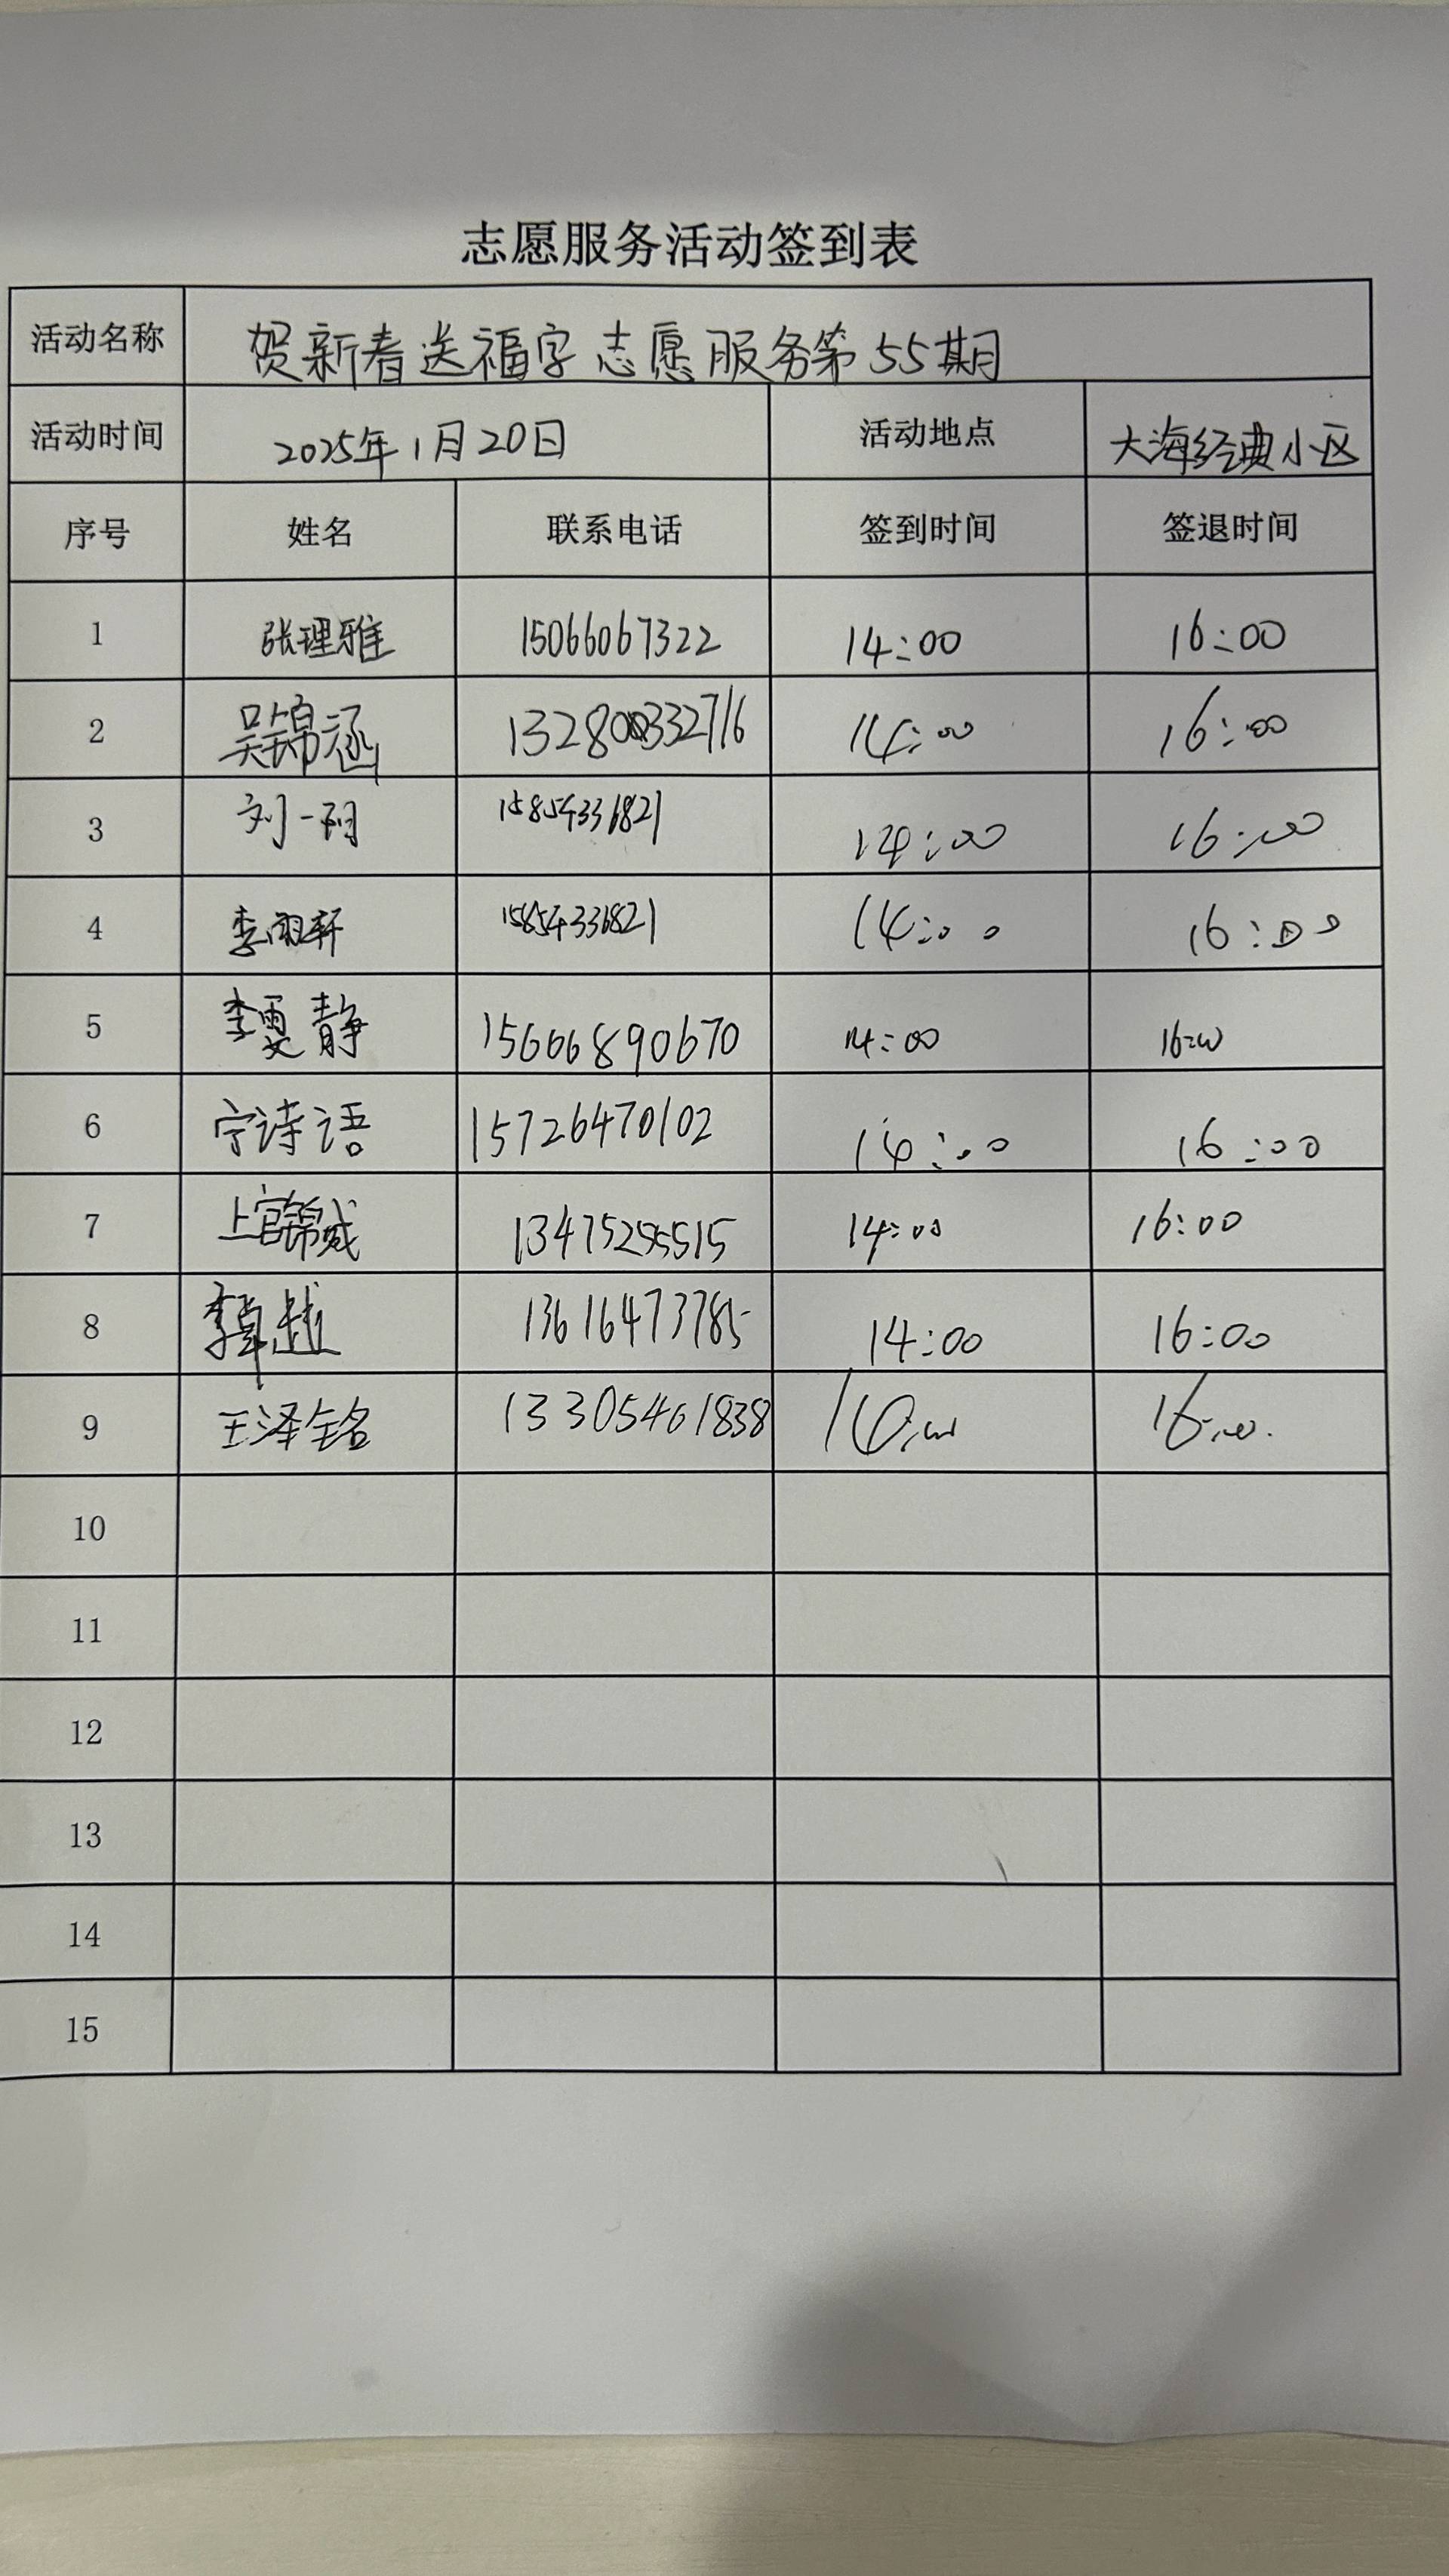 志愿服务活动签到表
活动名称 贺新春送福字志愿服务第55期
活动时间 2025年1月20日 活动地点 大海经典小区
序号 姓名 联系电话 签到时间 签退时间
1 张理雅 15066067322 14:00 16:00
2 吴锦涵 14:00 16:00
3 刘一阳 15854336821 14:00 16:00
4 李雨轩 15854336821 14:00 16:00
5 李雯静 15666890670 14:00 16:00
6 宁诗语 15726470102 14:00 16:00
7 上官锦威 13475255515 14:00 16:00
8 李卓越 13616473785 14:00 16:00
9 王泽铭 13305461838 14:00 16:00
10
11
12
13
14
15